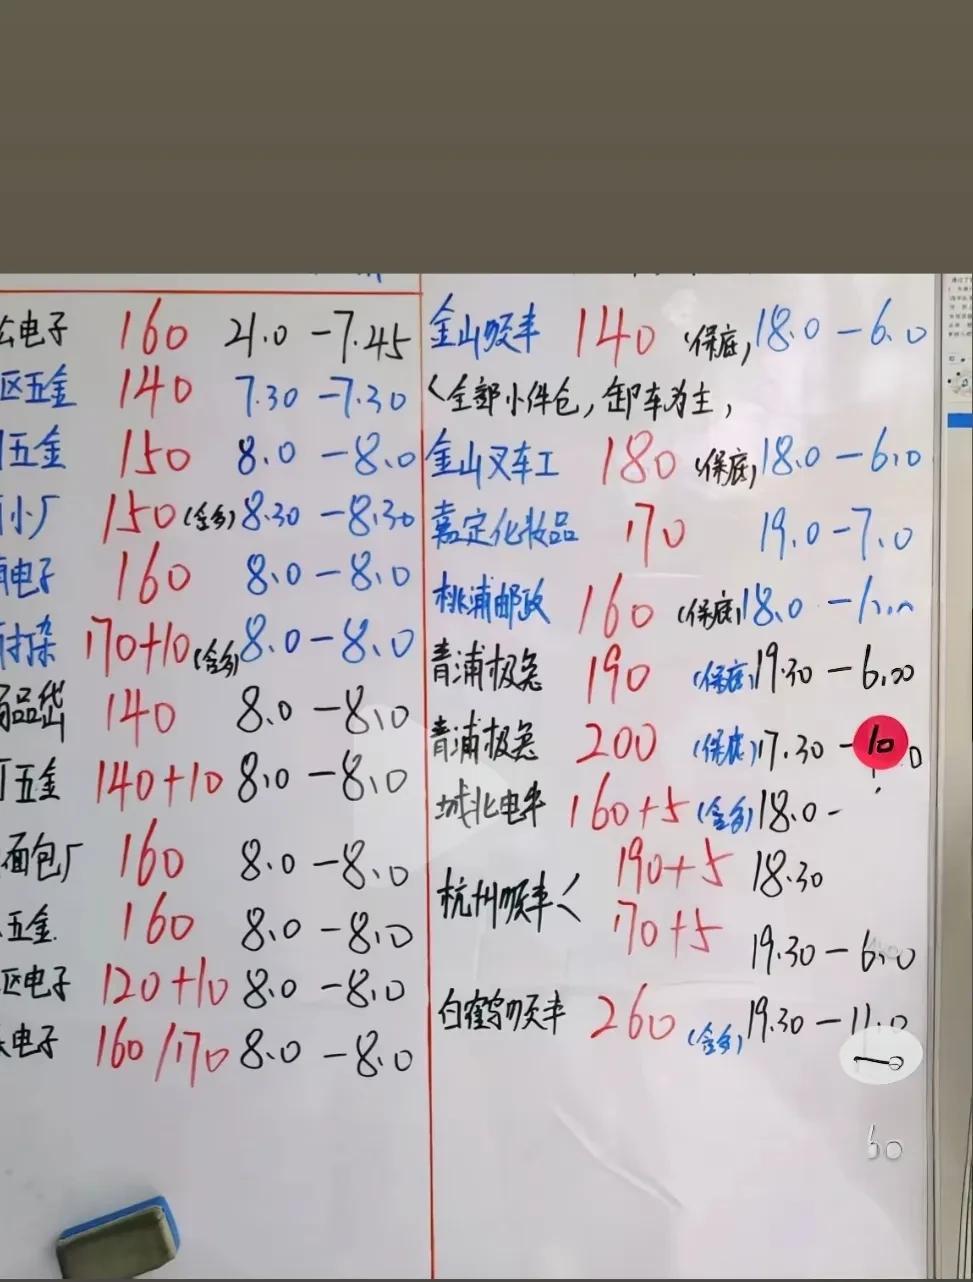 电子 160 21.0 - 7.45
区五金 140 7.30 - 7.30
五金 150 8.0 - 8.0
小厂 150 8.30 - 8.30
电子 160 8.0 - 8.0
170+10 8.0 - 8.0
140 8.0 - 8.0
五金 140+10 8.0 - 8.0
面包厂 160 8.0 - 8.0
五金 160 8.0 - 8.0
区电子 120+10 8.0 - 8.0
电子 160/170 8.0 - 8.0
金山顺丰 140 (保底) 18.0 - 6.0
<全部小件仓, 卸车为主,
金山叉车工 180 (保底) 18.0 - 6.0
嘉定化妆品 170 19.0 - 7.0
桃浦邮政 160 (保底) 18.0 -
青浦极兔 190 (保底) 19.30 - 6.00
青浦极兔 200 (保底) 17.30 - 10
城北电半 160+5 18.0 -
杭州顺丰 < 190+5 18.30
170+5 19.30 - 6.0
白鹤顺丰 260 19.30 - 11.0
60